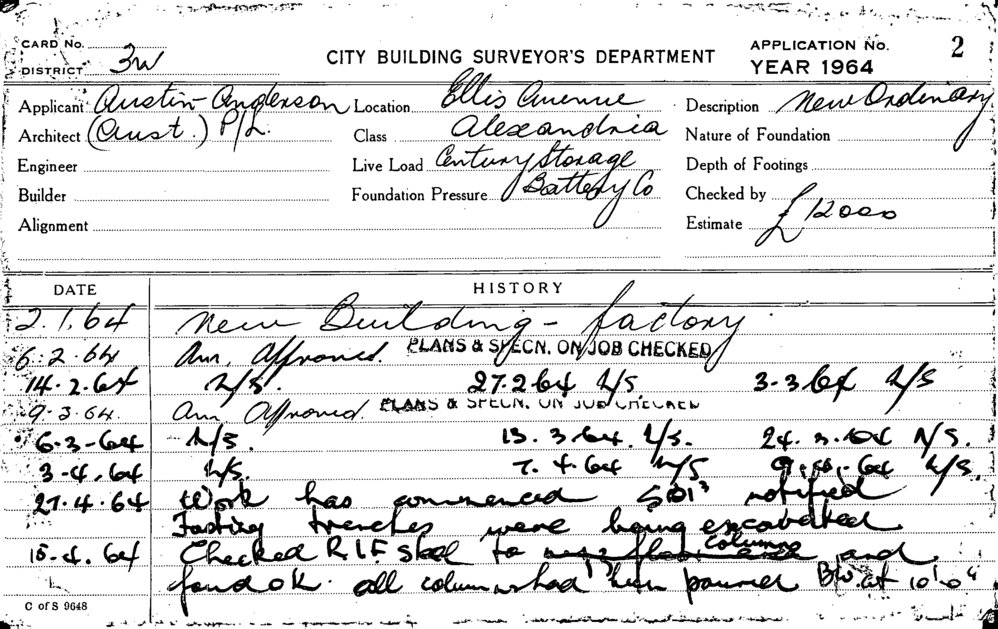 CARD No. CITY BUILDING SURVEYOR'S DEPARTMENT APPLICATION No. 2
DISTRICT 3W YEAR 1964
Applicant Austin-Anderson Location Ellis Avenue Description New Ordinary
Architect (Aust.) P/L. Class Alexandria Nature of Foundation
Engineer Live Load Century Storage Depth of Footings
Builder Foundation Pressure Battery Co Checked by
Alignment Estimate £12000
DATE HISTORY
2.1.64 New Building - factory
6.2.64 Am. Approved. PLANS & SPECN. ON JOB CHECKED
14.2.64 N/S. 27.2.64 N/S 3-3-64 N/S
9.3.64. Am Approved PLANS & SPECN. ON JOB CHECKED
6-3-64 N/S. 13.3.64. N/S. 24.3.64 N/S.
3-4.64 N/S. 7.4.64 N/S 9.4.64 N/S
27.4.64 Work has commenced notified
trenches were being excavated
15-4.64 Checked R/F steel to columns and
found ok. all columns had been poured at 10'.0"
C of S 9648